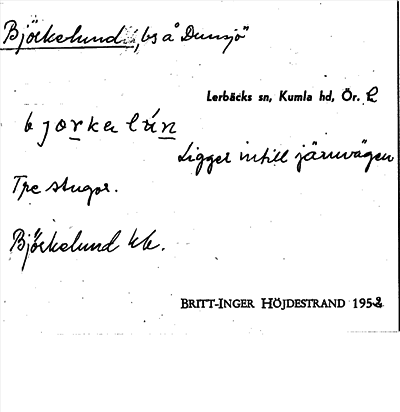 Björkelund, bs å Dunsjö
Lerbäcks sn, Kumla hd, Ör. L
bjorkelún
Ligger intill järnvägen
Tre stugor.
Björkelund kk.
BRITT-INGER HÖJDESTRAND 1952